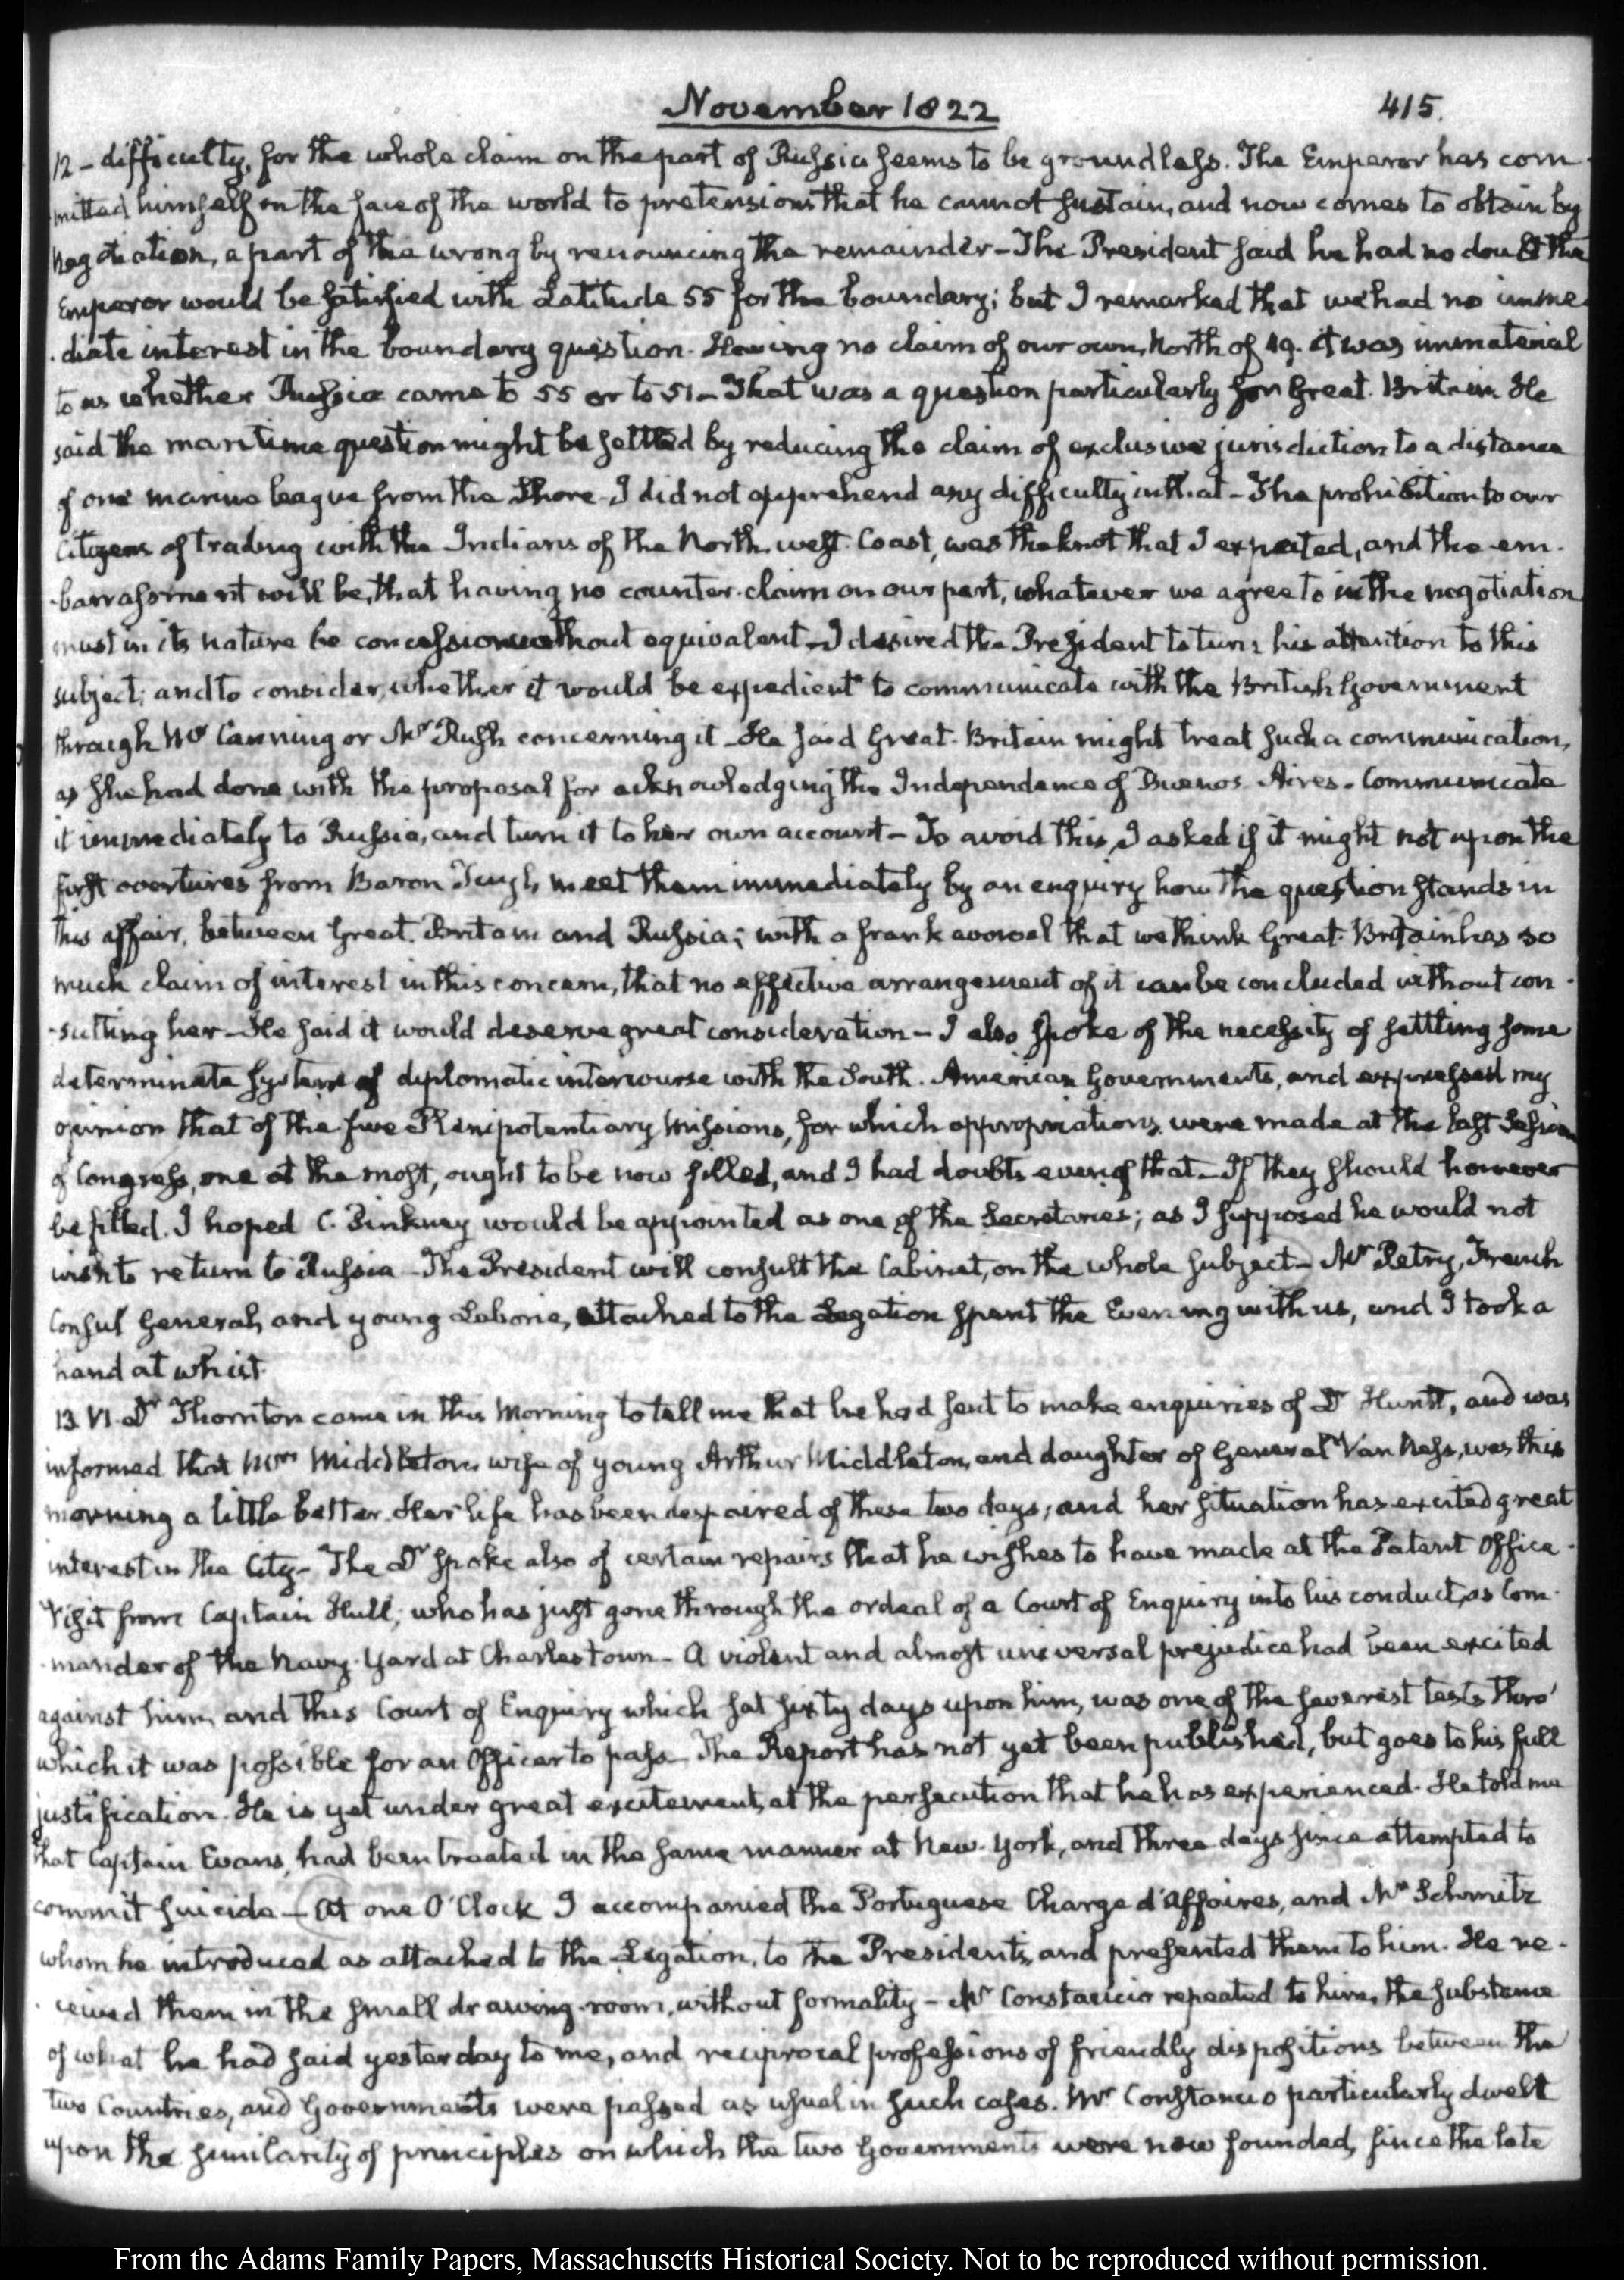 November 1822
415.
12 - difficulty, for the whole claim on the part of Russia seems to be groundless. The Emperor has com-
mitted himself on the face of the world to pretensions that he cannot sustain, and now comes to obtain by
Negotiation, a part of the wrong by renouncing the remainder - The President said he had no doubt the
Emperor would be satisfied with Latitude 55 for the boundary; but I remarked that we had no imme-
-diate interest in the boundary question. Having no claim of our own, North of 49. it was immaterial
to us whether Russia came to 55 or to 51 - That was a question particularly for Great Britain. He
said the maritime question might be settled by reducing the claim of exclusive jurisdiction to a distance
of one marine league from the Shore - I did not apprehend any difficulty in that - The prohibition to our
Citizens of trading with the Indians of the North west Coast, was the knot that I expected, and the em-
-barrassment will be, that having no counter-claim on our part, whatever we agree to in the negotiation
must in its nature be concession without equivalent - I desired the President to turn his attention to this
subject; and to consider, whether it would be expedient to communicate with the British Government
through Mr Canning or Mr Rush concerning it - He said Great Britain might treat such a communication,
as she had done with the proposal for acknowledging the Independence of Buenos Aires. Communicate
it immediately to Russia, and turn it to her own account - To avoid this, I asked if it might not upon the
first overtures from Baron Tuyl, meet them immediately by an enquiry how the question stands in
this affair, between Great Britain and Russia; with a frank avowal that we think Great Britain has so
much claim of interest in this concern, that no effective arrangement of it can be concluded without con-
-sulting her - He said it would deserve great consideration - I also spoke of the necessity of settling some
determinate system of diplomatic intercourse with the South American Governments, and expressed my
opinion that of the five Plenipotentiary Missions, for which appropriations were made at the last Session
of Congress, one at the most, ought to be now filled, and I had doubts even of that - If they should however
be filled, I hoped C. Pinkney would be appointed as one of the Secretaries; as I supposed he would not
wish to return to Russia - The President will consult the Cabinet, on the whole subject - Mr Petry, French
Consul General, and young Laborie, attached to the Legation spent the Evening with us, and I took a
hand at whist.
13. VI. Dr Thornton came in this Morning to tell me that he had sent to make enquiries of Dr Hunt, and was
informed that Mrs Middleton, wife of young Arthur Middleton, and daughter of General Van Ness, was this
morning a little better. Her life has been despaired of these two days; and her situation has excited great
interest in the City - The Dr spoke also of certain repairs that he wishes to have made at the Patent Office -
Visit from Captain Hull, who has just gone through the ordeal of a Court of Enquiry into his conduct, as Com-
-mander of the Navy-Yard at Charlestown - A violent and almost universal prejudice had been excited
against him, and this Court of Enquiry which sat sixty days upon him, was one of the severest tests thro'
which it was possible for an Officer to pass - The Report has not yet been published, but goes to his full
justification. He is yet under great excitement, at the persecution that he has experienced. He told me
that Captain Evans, had been treated in the same manner at New-York, and three days since attempted to
commit suicide - At one O'Clock I accompanied the Portuguese Charge d'Affaires, and Mr Schmitz
whom he introduced as attached to the Legation, to the Presidents, and presented them to him. He re-
-ceived them in the small drawing-room, without formality - Mr Constancio repeated to him, the substance
of what he had said yesterday to me, and reciprocal professions of friendly dispositions between the
two Countries, and Governments were passed as usual in such cases. Mr Constancio particularly dwelt
upon the similarity of principles on which the two Governments were now founded, since the late
From the Adams Family Papers, Massachusetts Historical Society. Not to be reproduced without permission.